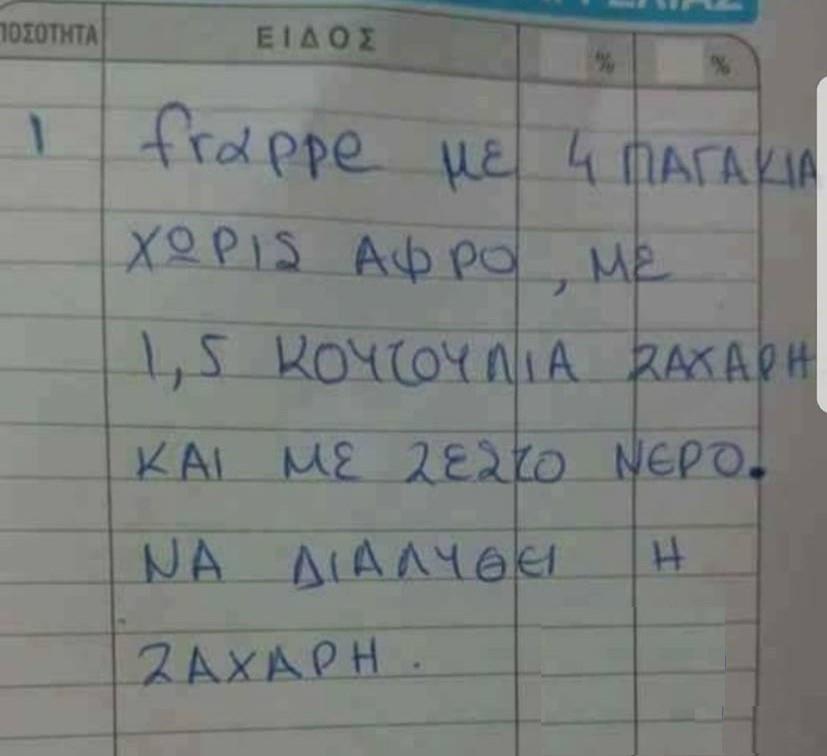 ΠΟΣΟΤΗΤΑ ΕΙΔΟΣ % %
1 frappe με 4 ΠΑΓΑΚΙΑ
ΧΩΡΙΣ ΑΦΡΟ, ΜΕ
1,5 ΚΟΥΤΟΥΛΙΑ ΖΑΧΑΡΗ
ΚΑΙ ΜΕ ΖΕΣΤΟ ΝΕΡΟ.
ΝΑ ΔΙΑΛΥΘΕΙ Η
ΖΑΧΑΡΗ.